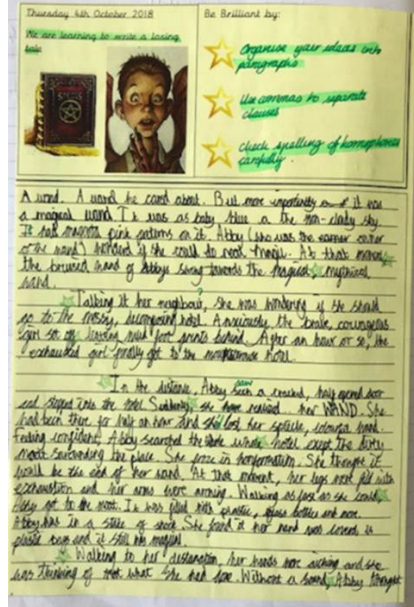 Thursday 4th October 2018
We are learning to write a losing
tale
Be Brilliant by:
Organise your ideas into
paragraphs
Use commas to separate
clauses
Check spelling of homophones
carefully.
A wand. A wand he cared about. But more importantly it was
a magical wand. It was as baby blue a the non-cloudy sky.
It had magenta pink patterns on it. Abby (who was the owner
of the wand) wonderd if she could do real magic. At that moment
the bruised hand of Abbys swung towards the magical, mythical
wand.
Talking it her neighbour, she was wondering if she should
go to the messy, decomposing hotel. Anxiously the brave, courageous
girl set off leaving foot prints behind. After an hour or so, the
exhausted girl finally got to the hotel.
In the distance, Abby seen a cracked, half opend door
and steped into the hotel. Suddenly, she her WAND. She
had been there for half an hour and she lost her wand.
Feeling confident, Abby searched the whole hotel except the dirty
moat surrounding the place. She froze in She thought it
would be the end of her wand. At that moment, her legs filld with
exhaustion and her arms were Walking as fast as she could,
Abby got to the moat. It was filled with plastic, glass bottles and more.
Abby was in a state of shock. She found it her hand was coverd in
plastic and it still his magical
Walking to her destanation, her hands were aching and she
was thinking of what she had Without a sound, Abby